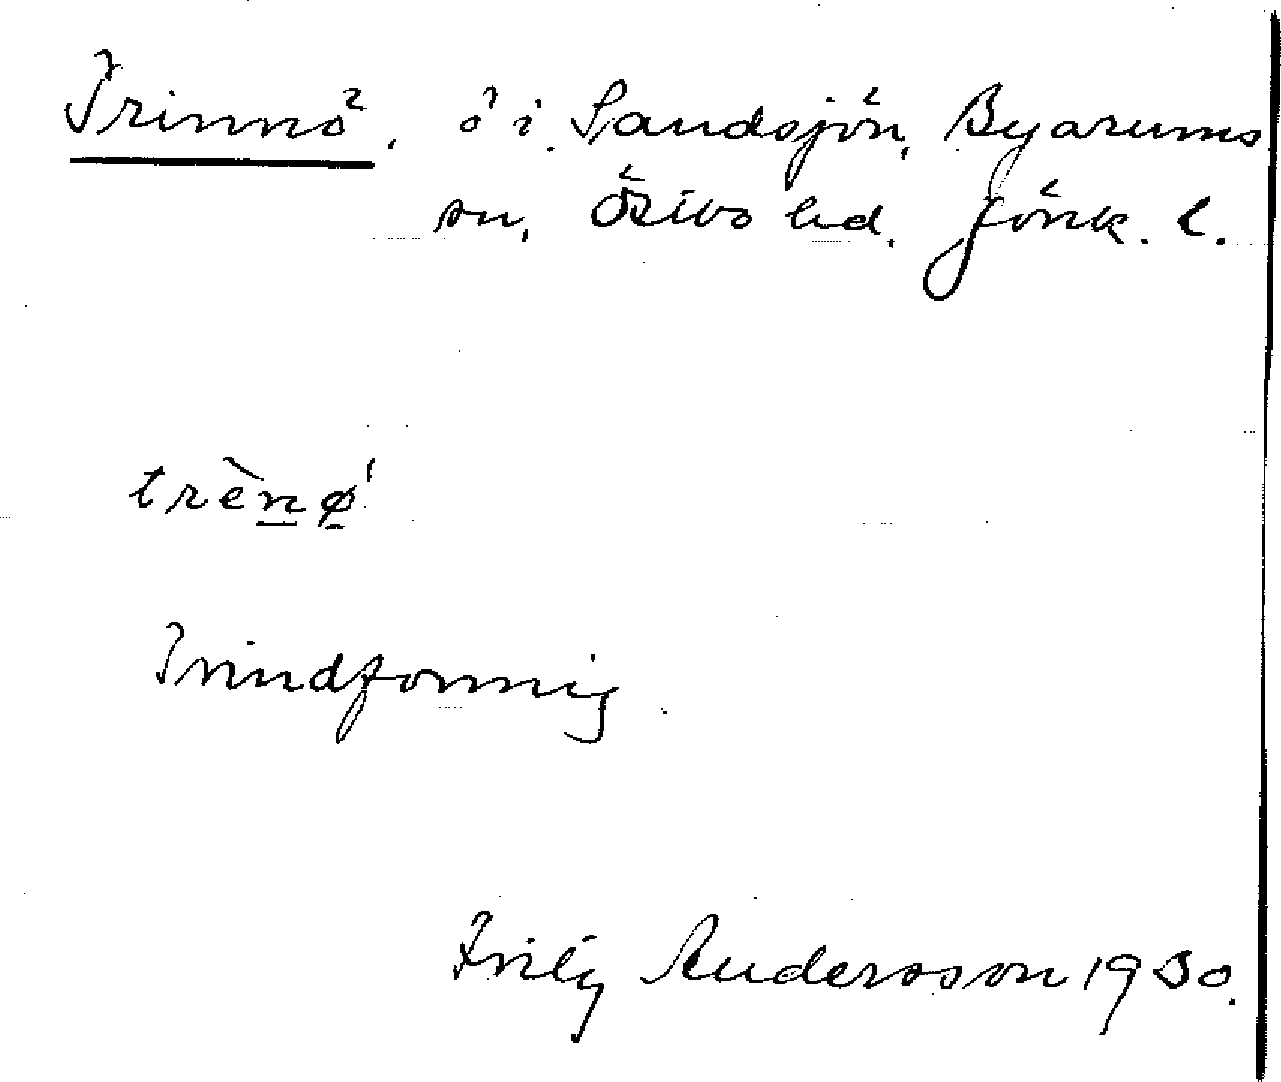 Trinnö, ö i Sandsjön, Byarums
sn, Östbo hd, Jönk. l.
trènø'
Trindformig
Fritz Andersson 1930.